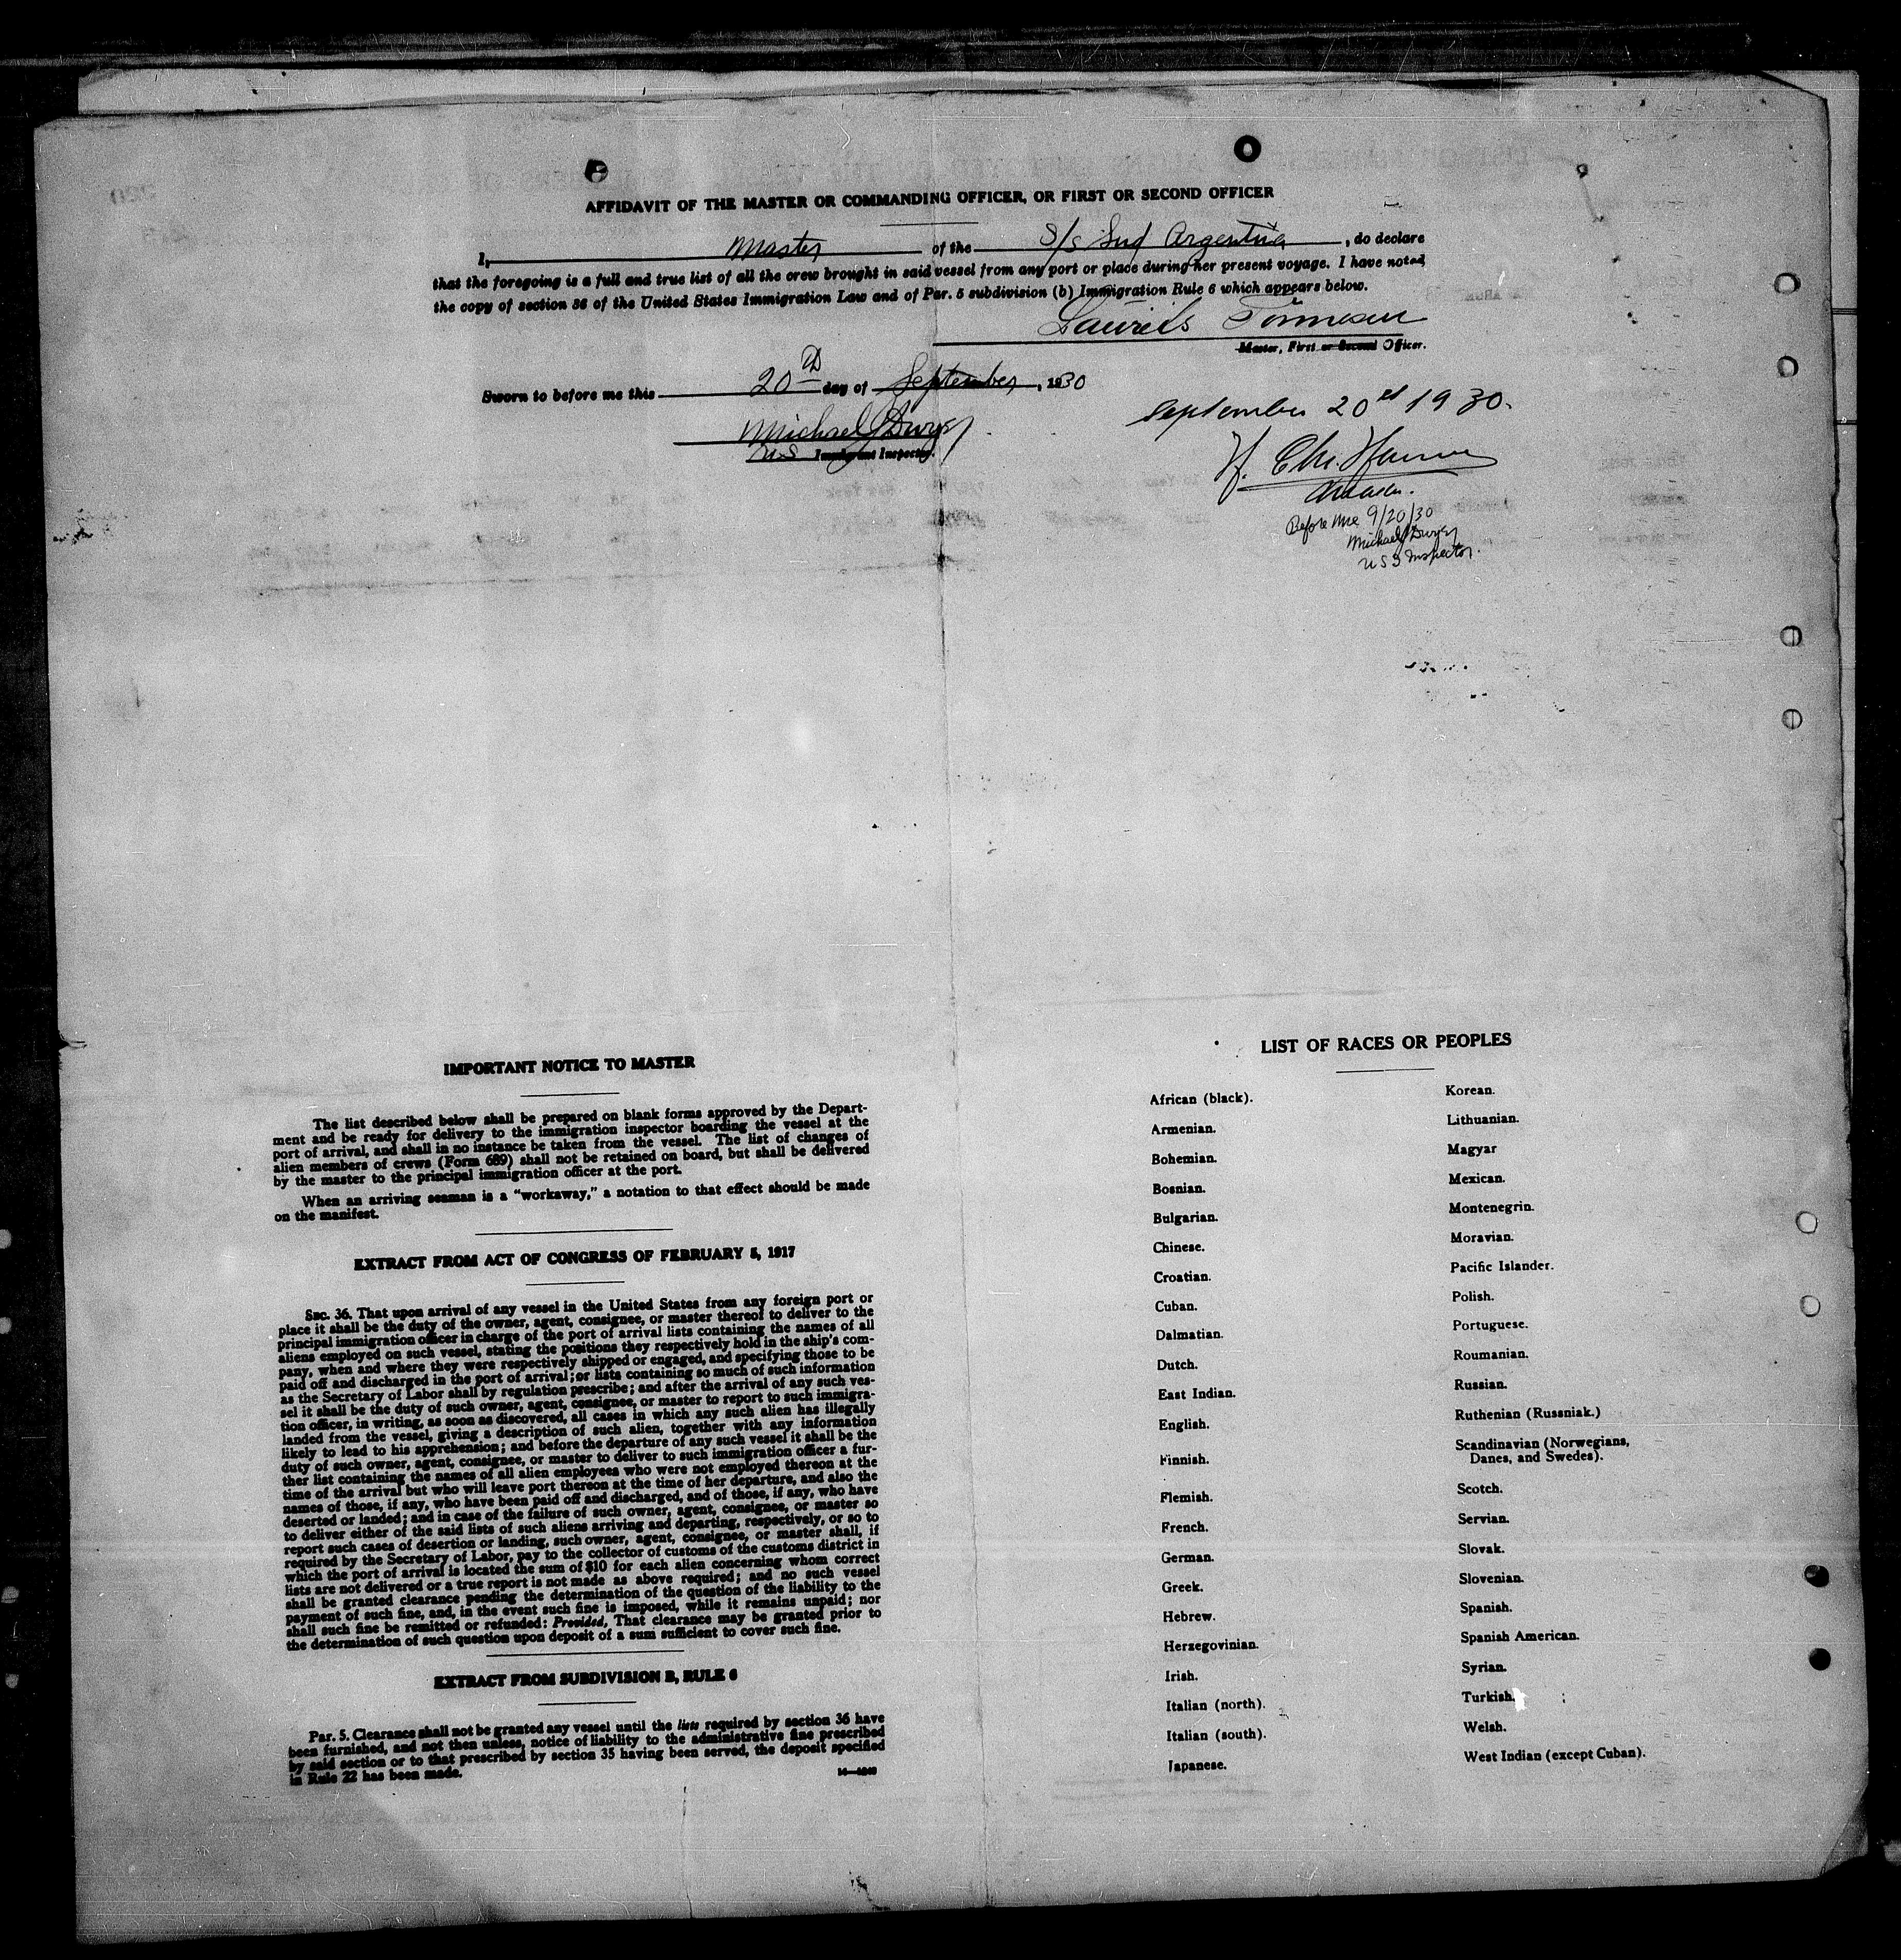 AFFIDAVIT OF THE MASTER OR COMMANDING OFFICER, OR FIRST OR SECOND OFFICER
I, Master of the S/s Sud Argentina, do declare
that the foregoing is a full and true list of all the crew brought in said vessel from any port or place during her present voyage. I have noted
the copy of section 36 of the United States Immigration Law and of Par. 5 subdivision (b) Immigration Rule 6 which appears below.
Laurids
Master, First or Second Officer.
Sworn to before me this 20th day of September, 1930
Michael J Dwyer
U.S. Immigrant Inspector.
September 20th 1930.
H. Chr.
Master.
Before me 9/20/30
Michael J Dwyer
U S I Inspector.
IMPORTANT NOTICE TO MASTER
The list described below shall be prepared on blank forms approved by the Depart-
ment and be ready for delivery to the immigration inspector boarding the vessel at the
port of arrival, and shall in no instance be taken from the vessel. The list of changes of
alien members of crews (Form 689) shall not be retained on board, but shall be delivered
by the master to the principal immigration officer at the port.
When an arriving seaman is a "workaway," a notation to that effect should be made
on the manifest.
EXTRACT FROM ACT OF CONGRESS OF FEBRUARY 5, 1917
SEC. 36. That upon arrival of any vessel in the United States from any foreign port or
place it shall be the duty of the owner, agent, consignee, or master thereof to deliver to the
principal immigration officer in charge of the port of arrival lists containing the names of all
aliens employed on such vessel, stating the positions they respectively hold in the ship's com-
pany, when and where they were respectively shipped or engaged, and specifying those to be
paid off and discharged in the port of arrival; or lists containing so much of such information
as the Secretary of Labor shall by regulation prescribe; and after the arrival of any such ves-
sel it shall be the duty of such owner, agent, consignee, or master to report to such immigra-
tion officer, in writing, as soon as discovered, all cases in which any such alien has illegally
landed from the vessel, giving a description of such alien, together with any information
likely to lead to his apprehension; and before the departure of any such vessel it shall be the
duty of such owner, agent, consignee, or master to deliver to such immigration officer a fur-
ther list containing the names of all alien employees who were not employed thereon at the
time of the arrival but who will leave port thereon at the time of her departure, and also the
names of those, if any, who have been paid off and discharged, and of those, if any, who have
deserted or landed; and in case of the failure of such owner, agent, consignee, or master so
to deliver either of the said lists of such aliens arriving and departing, respectively, or so to
report such cases of desertion or landing, such owner, agent, consignee, or master shall, if
required by the Secretary of Labor, pay to the collector of customs of the customs district in
which the port of arrival is located the sum of $10 for each alien concerning whom correct
lists are not delivered or a true report is not made as above required; and no such vessel
shall be granted clearance pending the determination of the question of the liability to the
payment of such fine, and, in the event such fine is imposed, while it remains unpaid; nor
shall such fine be remitted or refunded: Provided, That clearance may be granted prior to
the determination of such question upon deposit of a sum sufficient to cover such fine.
EXTRACT FROM SUBDIVISION B, RULE 6
Par. 5. Clearance shall not be granted any vessel until the lists required by section 36 have
been furnished, and not then unless, notice of liability to the administrative fine prescribed
by said section or to that prescribed by section 35 having been served, the deposit specified
in Rule 22 has been made.
LIST OF RACES OR PEOPLES
African (black).
Armenian.
Bohemian.
Bosnian.
Bulgarian.
Chinese.
Croatian.
Cuban.
Dalmatian.
Dutch.
East Indian.
English.
Finnish.
Flemish.
French.
German.
Greek.
Hebrew.
Herzegovinian.
Irish.
Italian (north).
Italian (south).
Japanese.
Korean.
Lithuanian.
Magyar
Mexican.
Montenegrin.
Moravian.
Pacific Islander.
Polish.
Portuguese.
Roumanian.
Russian.
Ruthenian (Russniak.)
Scandinavian (Norwegians,
Danes, and Swedes).
Scotch.
Servian.
Slovak.
Slovenian.
Spanish.
Spanish American.
Syrian.
Turkish.
Welsh.
West Indian (except Cuban).